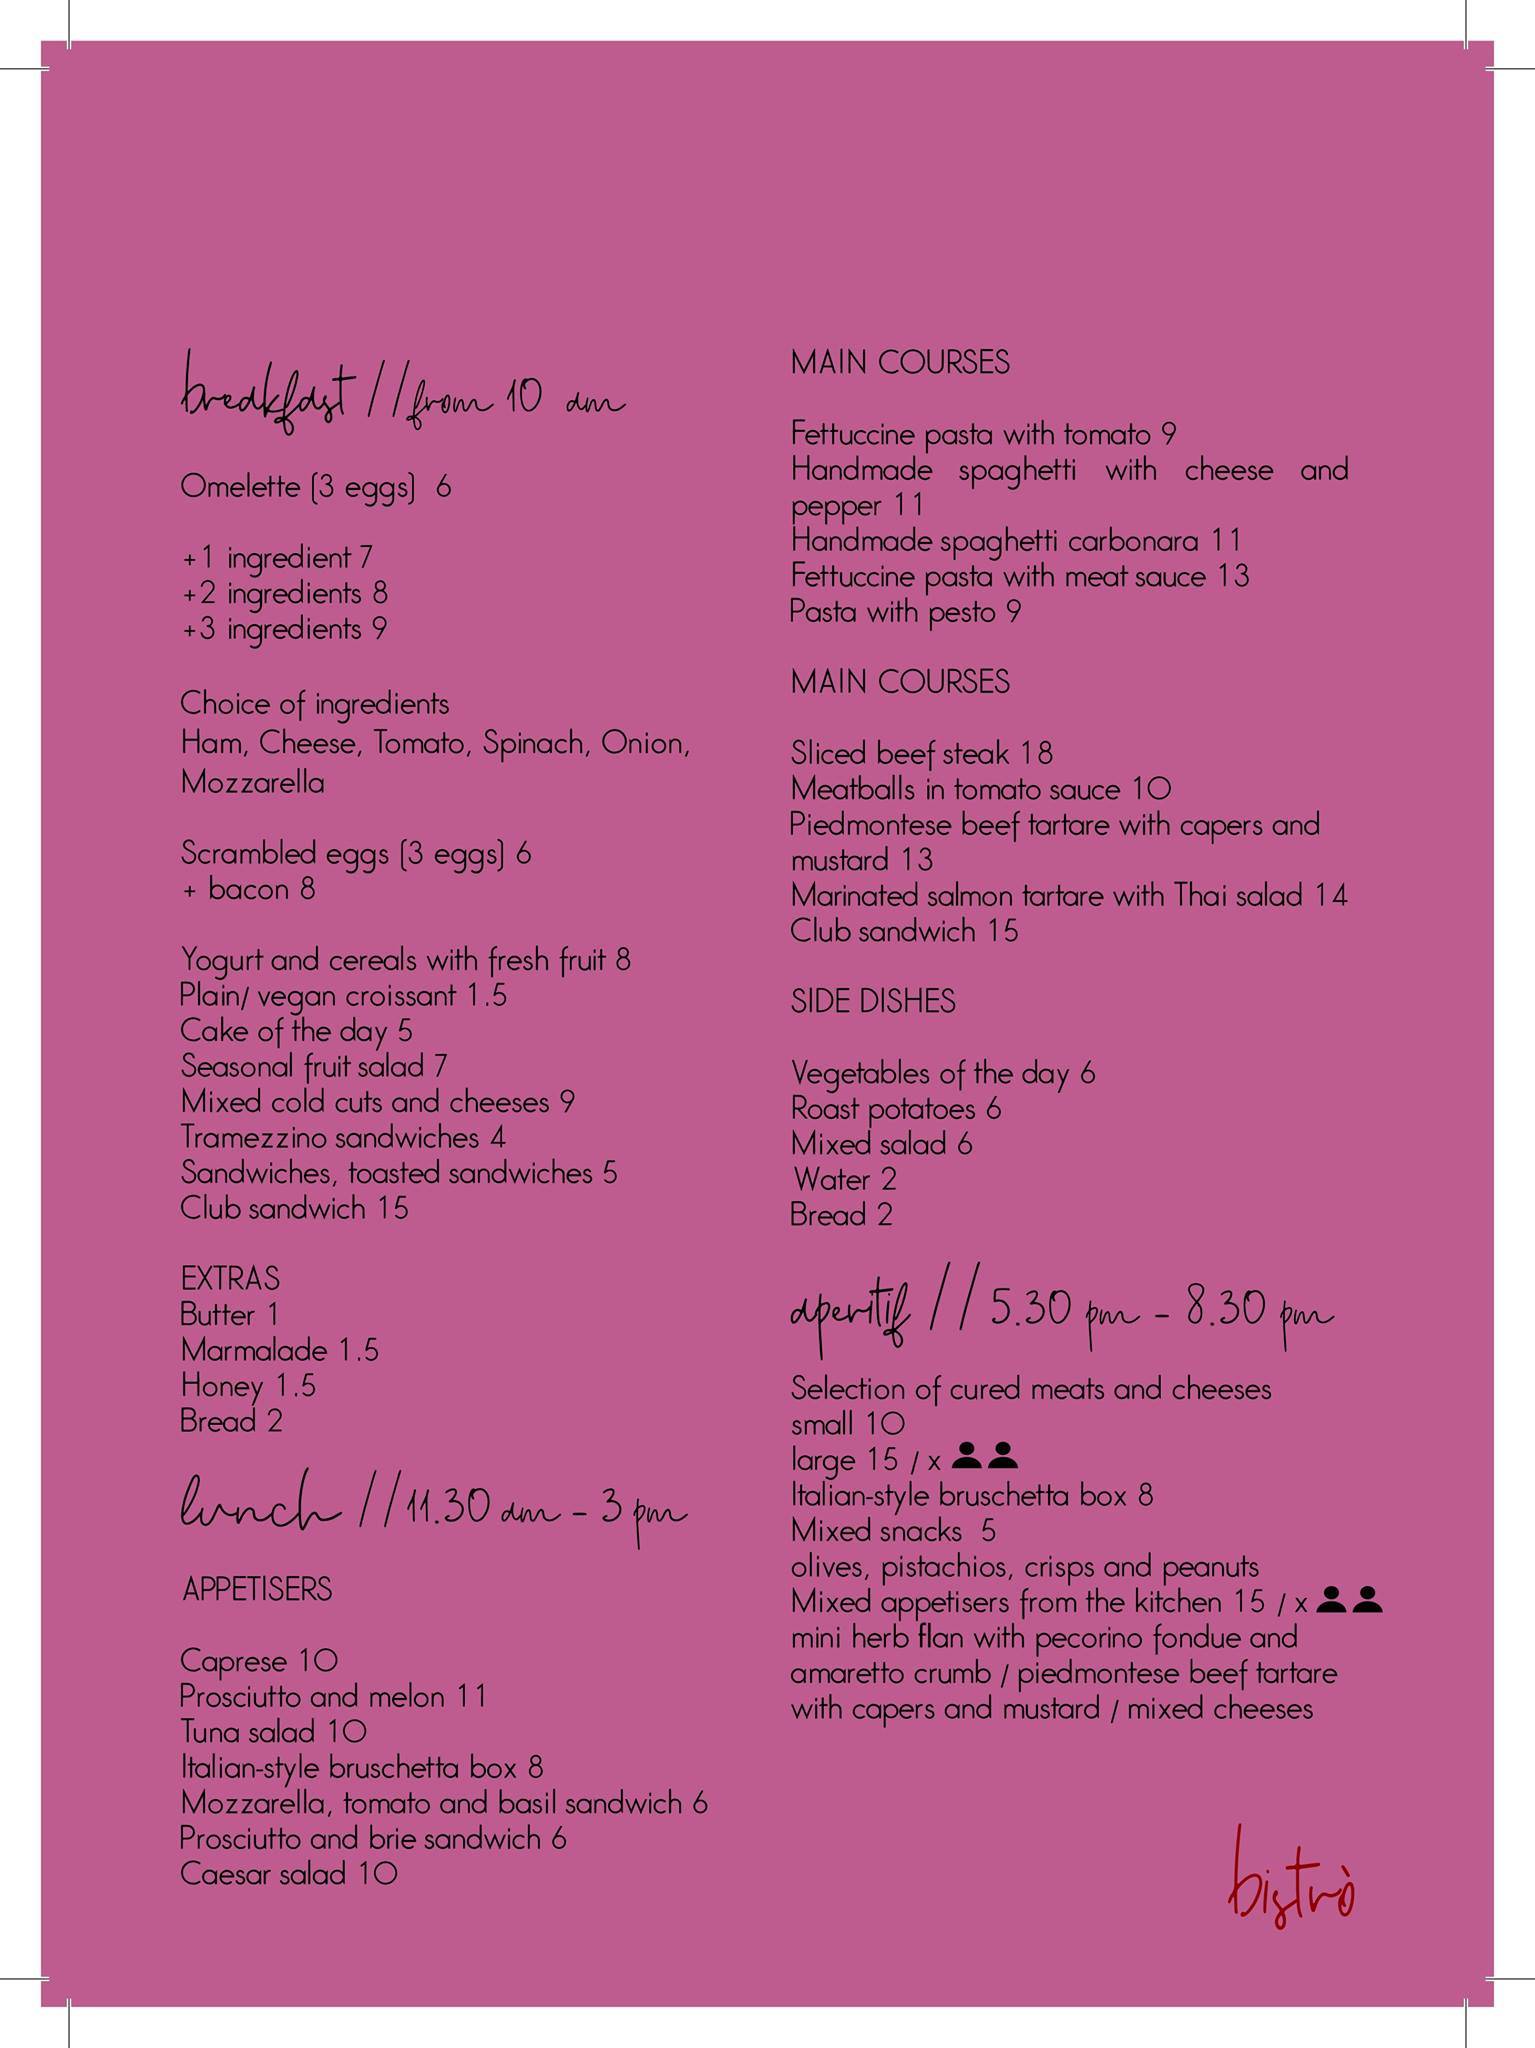 breakfast // from 10 am
Omelette (3 eggs) 6
+1 ingredient 7
+2 ingredients 8
+3 ingredients 9
Choice of ingredients
Ham, Cheese, Tomato, Spinach, Onion,
Mozzarella
Scrambled eggs (3 eggs) 6
+ bacon 8
Yogurt and cereals with fresh fruit 8
Plain/ vegan croissant 1.5
Cake of the day 5
Seasonal fruit salad 7
Mixed cold cuts and cheeses 9
Tramezzino sandwiches 4
Sandwiches, toasted sandwiches 5
Club sandwich 15
EXTRAS
Butter 1
Marmalade 1.5
Honey 1.5
Bread 2
lunch // 11.30 am - 3 pm
APPETISERS
Caprese 10
Prosciutto and melon 11
Tuna salad 10
Italian-style bruschetta box 8
Mozzarella, tomato and basil sandwich 6
Prosciutto and brie sandwich 6
Caesar salad 10
MAIN COURSES
Fettuccine pasta with tomato 9
Handmade spaghetti with cheese and
pepper 11
Handmade spaghetti carbonara 11
Fettuccine pasta with meat sauce 13
Pasta with pesto 9
MAIN COURSES
Sliced beef steak 18
Meatballs in tomato sauce 10
Piedmontese beef tartare with capers and
mustard 13
Marinated salmon tartare with Thai salad 14
Club sandwich 15
SIDE DISHES
Vegetables of the day 6
Roast potatoes 6
Mixed salad 6
Water 2
Bread 2
aperitif // 5.30 pm - 8.30 pm
Selection of cured meats and cheeses
small 10
large 15 / x
Italian-style bruschetta box 8
Mixed snacks 5
olives, pistachios, crisps and peanuts
Mixed appetisers from the kitchen 15 / x
mini herb flan with pecorino fondue and
amaretto crumb / piedmontese beef tartare
with capers and mustard / mixed cheeses
bistrò